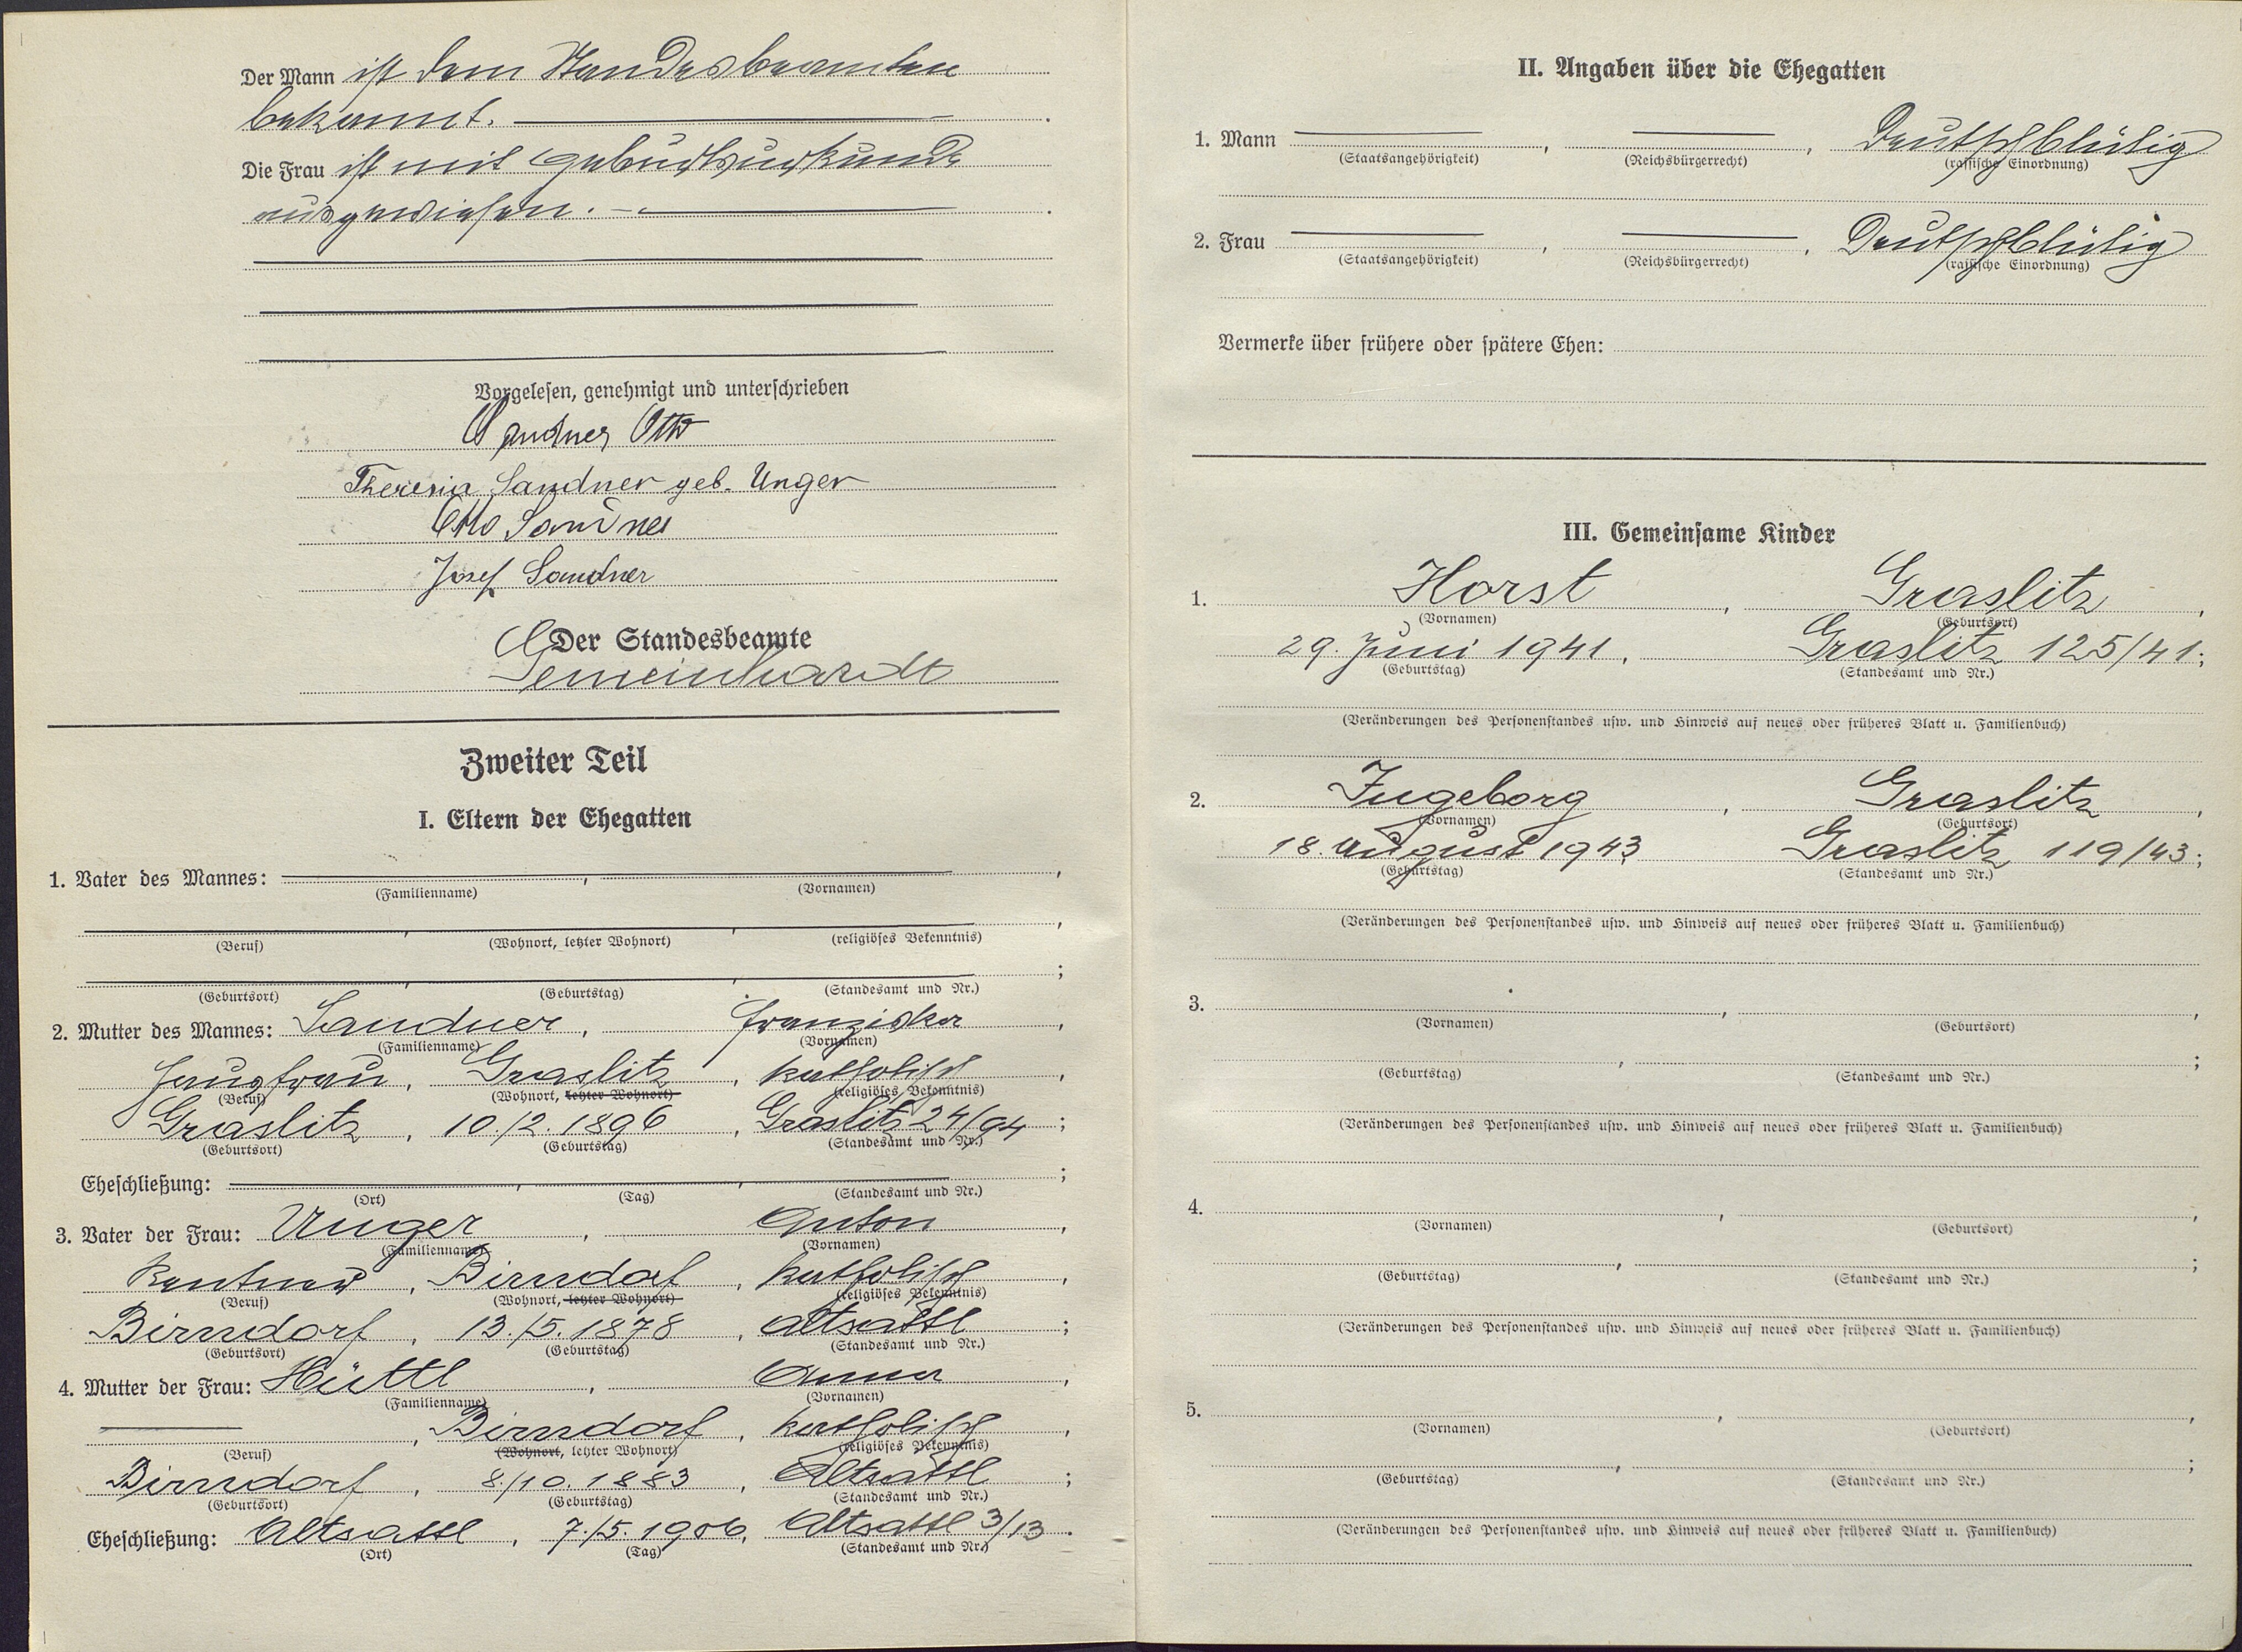 Der Mann ist dem Standesbeamten
bekannt.
Die Frau ist mit Geburtsurkunde
ausgewiesen.
Vorgelesen, genehmigt und unterschrieben
Sandner Otto
Theresia Sandner geb. Unger
Otto Sandner
Josef Sandner
Der Standesbeamte
Gemeinhardt
Zweiter Teil
I. Eltern der Ehegatten
1. Vater des Mannes: , ,
(Familienname) (Vornamen)
, , ,
(Beruf) (Wohnort, letzter Wohnort) (religiöses Bekenntnis)
, , ;
(Geburtsort) (Geburtstag) (Standesamt und Nr.)
2. Mutter des Mannes: Sandner, Franziska,
(Familienname) (Vornamen)
Jungfrau, Graslitz, katholisch,
(Beruf) (Wohnort, letzter Wohnort) (religiöses Bekenntnis)
Graslitz, 10./2. 1896, Graslitz 24/94;
(Geburtsort) (Geburtstag) (Standesamt und Nr.)
Eheschließung: , , ;
(Ort) (Tag) (Standesamt und Nr.)
3. Vater der Frau: Unger, Anton,
(Familienname) (Vornamen)
Rentner, Birndorf, katholisch,
(Beruf) (Wohnort, letzter Wohnort) (religiöses Bekenntnis)
Birndorf, 13./5. 1878, Altsattl;
(Geburtsort) (Geburtstag) (Standesamt und Nr.)
4. Mutter der Frau: Hüttl, Anna,
(Familienname) (Vornamen)
, Birndorf, katholisch,
(Beruf) (Wohnort, letzter Wohnort) (religiöses Bekenntnis)
Birndorf, 8./10. 1883, Altsattl;
(Geburtsort) (Geburtstag) (Standesamt und Nr.)
Eheschließung: Altsattl, 7./5. 1906, Altsattl 3/13.
(Ort) (Tag) (Standesamt und Nr.)
II. Angaben über die Ehegatten
1. Mann , , Deutschblütig
(Staatsangehörigkeit) (Reichsbürgerrecht) (rassische Einordnung)
2. Frau , , Deutschblütig
(Staatsangehörigkeit) (Reichsbürgerrecht) (rassische Einordnung)
Vermerke über frühere oder spätere Ehen:
III. Gemeinsame Kinder
1. Horst, Graslitz,
(Vornamen) (Geburtsort)
29. Juni 1941, Graslitz 125/41;
(Geburtstag) (Standesamt und Nr.)
(Veränderungen des Personenstandes usw. und Hinweis auf neues oder früheres Blatt u. Familienbuch)
2. Ingeborg, Graslitz,
(Vornamen) (Geburtsort)
18. August 1943 Graslitz 119/43;
(Geburtstag) (Standesamt und Nr.)
(Veränderungen des Personenstandes usw. und Hinweis auf neues oder früheres Blatt u. Familienbuch)
3. , ,
(Vornamen) (Geburtsort)
, ;
(Geburtstag) (Standesamt und Nr.)
(Veränderungen des Personenstandes usw. und Hinweis auf neues oder früheres Blatt u. Familienbuch)
4. , ,
(Vornamen) (Geburtsort)
, ;
(Geburtstag) (Standesamt und Nr.)
(Veränderungen des Personenstandes usw. und Hinweis auf neues oder früheres Blatt u. Familienbuch)
5. , ,
(Vornamen) (Geburtsort)
, ;
(Geburtstag) (Standesamt und Nr.)
(Veränderungen des Personenstandes usw. und Hinweis auf neues oder früheres Blatt u. Familienbuch)